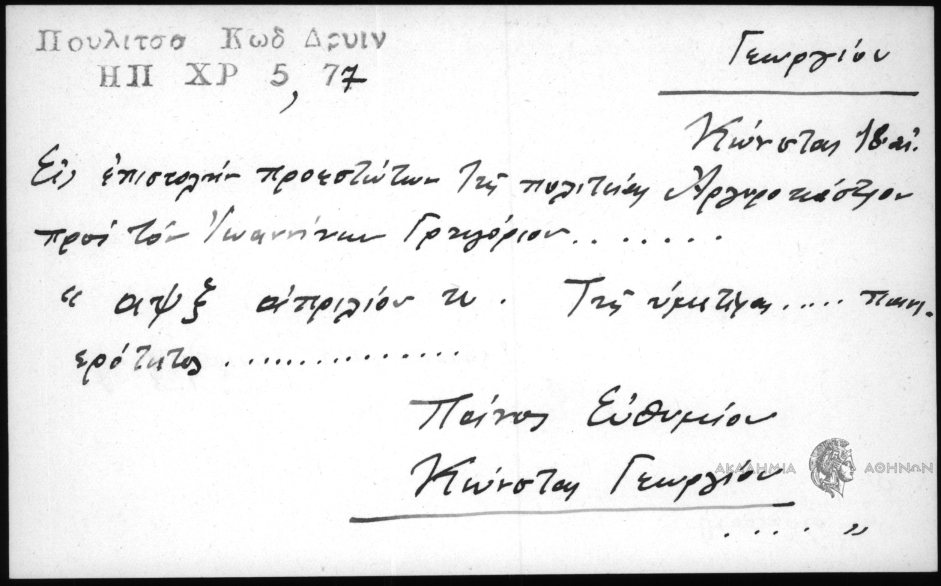 Πουλιτσα Κωδ Δρυιν
ΗΠ ΧΡ 5, 77
Γεωργίου
Κώνστας 18 αἰ.
Εἰς ἐπιστολὴν προεστώτων τῆς πολιτείας Ἀργυροκάστρου
πρὸς τὸν Ἰωαννίνων Γρηγόριον.......
“ αψξ ἀπριλίου . Τῆς ὑμετέρας ..... πανι-
ερότητος ..............
Πάνος Εὐθυμίου
Κώνστας Γεωργίου
.... ”
ΑΚΑΔΗΜΙΑ ΑΘΗΝΩΝ